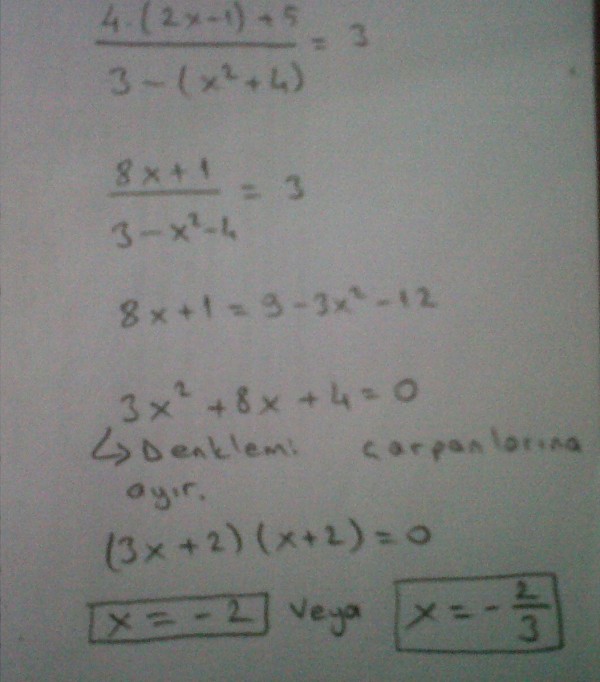 4.(2x-1)+5
= 3
3-(x²+4)
8x+1
= 3
3-x²-4
8x+1=9-3x²-12
3x²+8x+4=0
↳ Denklemi çarpanlarına
ayır.
(3x+2)(x+2)=0
x=-2 veya x=-2/3